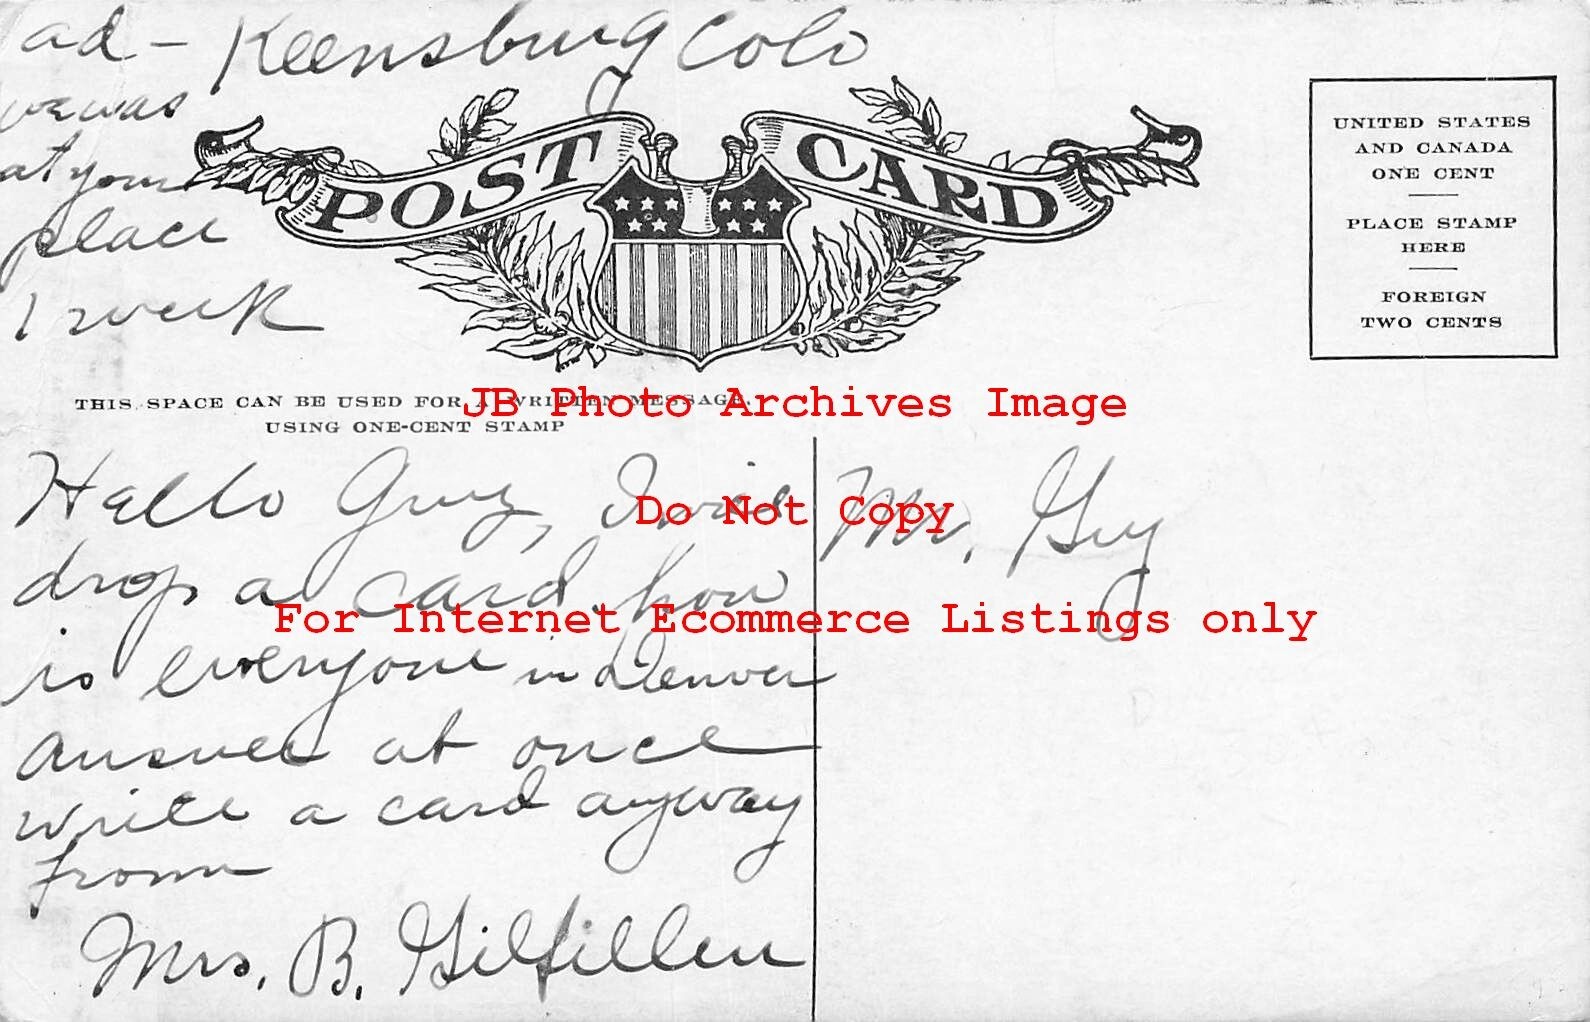 ad - Keensburg Colo
we was
at your
place
1 week
POST CARD
UNITED STATES
AND CANADA
ONE CENT
PLACE STAMP
HERE
FOREIGN
TWO CENTS
THIS SPACE CAN BE USED FOR A WRITTEN MESSAGE.
USING ONE-CENT STAMP
JB Photo Archives Image
Do Not Copy
For Internet Ecommerce Listings only
Hello Guy, I will
drop a card. how
is everyone in Denver
answer at once
write a card anyway
from
Mrs. B. Gilfillen
Mr. Guy